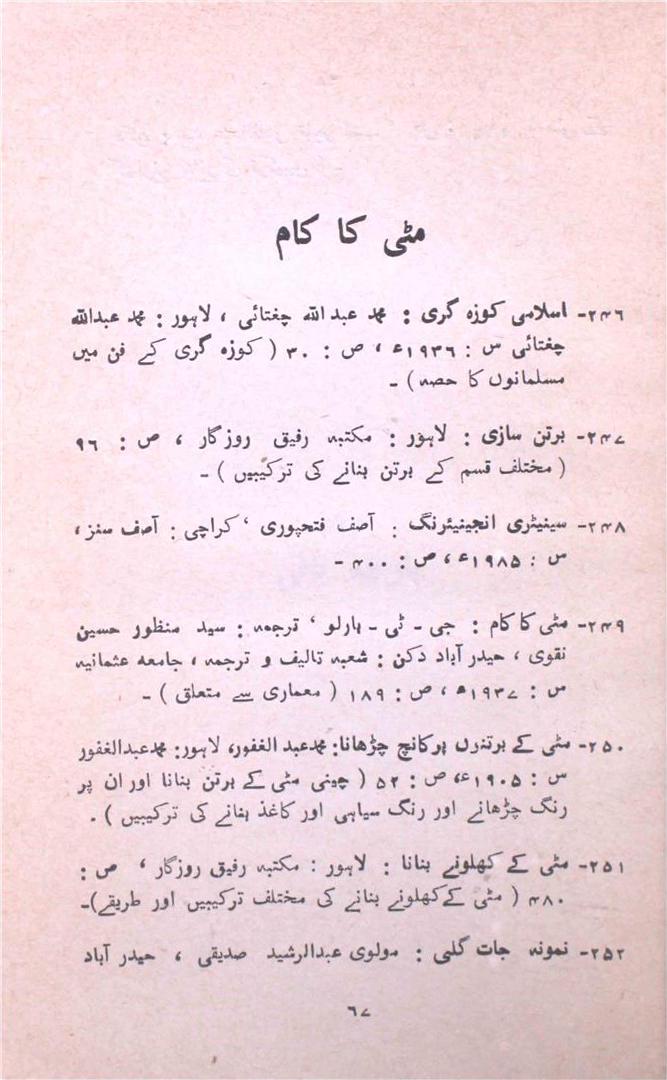 مٹی کا کام
۲۴۶- اسلامی کوزہ گری : محمد عبداللہ چغتائی ، لاہور : محمد عبداللہ
چغتائی س : ۱۹۳۶ء ، ص : ۳۰ ( کوزہ گری کے فن میں
مسلمانوں کا حصہ ) -
۲۴۷- برتن سازی : لاہور : مکتبہ رفیق روزگار ، ص : ۹۶
( مختلف قسم کے برتن بنانے کی ترکیبیں ) -
۲۴۸- سینیٹری انجینیئرنگ : آصف فتحپوری ‘ کراچی : آصف سنز ،
س : ۱۹۸۵ء ، ص : ۴۰۰ -
۲۴۹- مٹی کا کام : جی - ٹی - ہارلو ‘ ترجمہ : سید منظور حسین
نقوی ، حیدر آباد دکن : شعبہ تالیف و ترجمہ ، جامعہ عثمانیہ
س : ۱۹۳۷ء ، ص : ۱۸۹ ( معماری سے متعلق ) -
۲۵۰- مٹی کے برتنوں پر کانچ چڑھانا : محمد عبد الغفور ، لاہور : محمد عبدالغفور
س : ۱۹۰۵ء ، ص : ۵۲ ( چینی مٹی کے برتن بنانا اور ان پر
رنگ چڑھانے اور رنگ سیاہی اور کاغذ بنانے کی ترکیبیں ) .
۲۵۱- مٹی کے کھلونے بنانا : لاہور : مکتبہ رفیق روزگار ‘ ص :
۴۸۰ ( مٹی کے کھلونے بنانے کی مختلف ترکیبیں اور طریقے ) -
۲۵۲- نمونہ جات گلی : مولوی عبدالرشید صدیقی ، حیدر آباد
۶۷